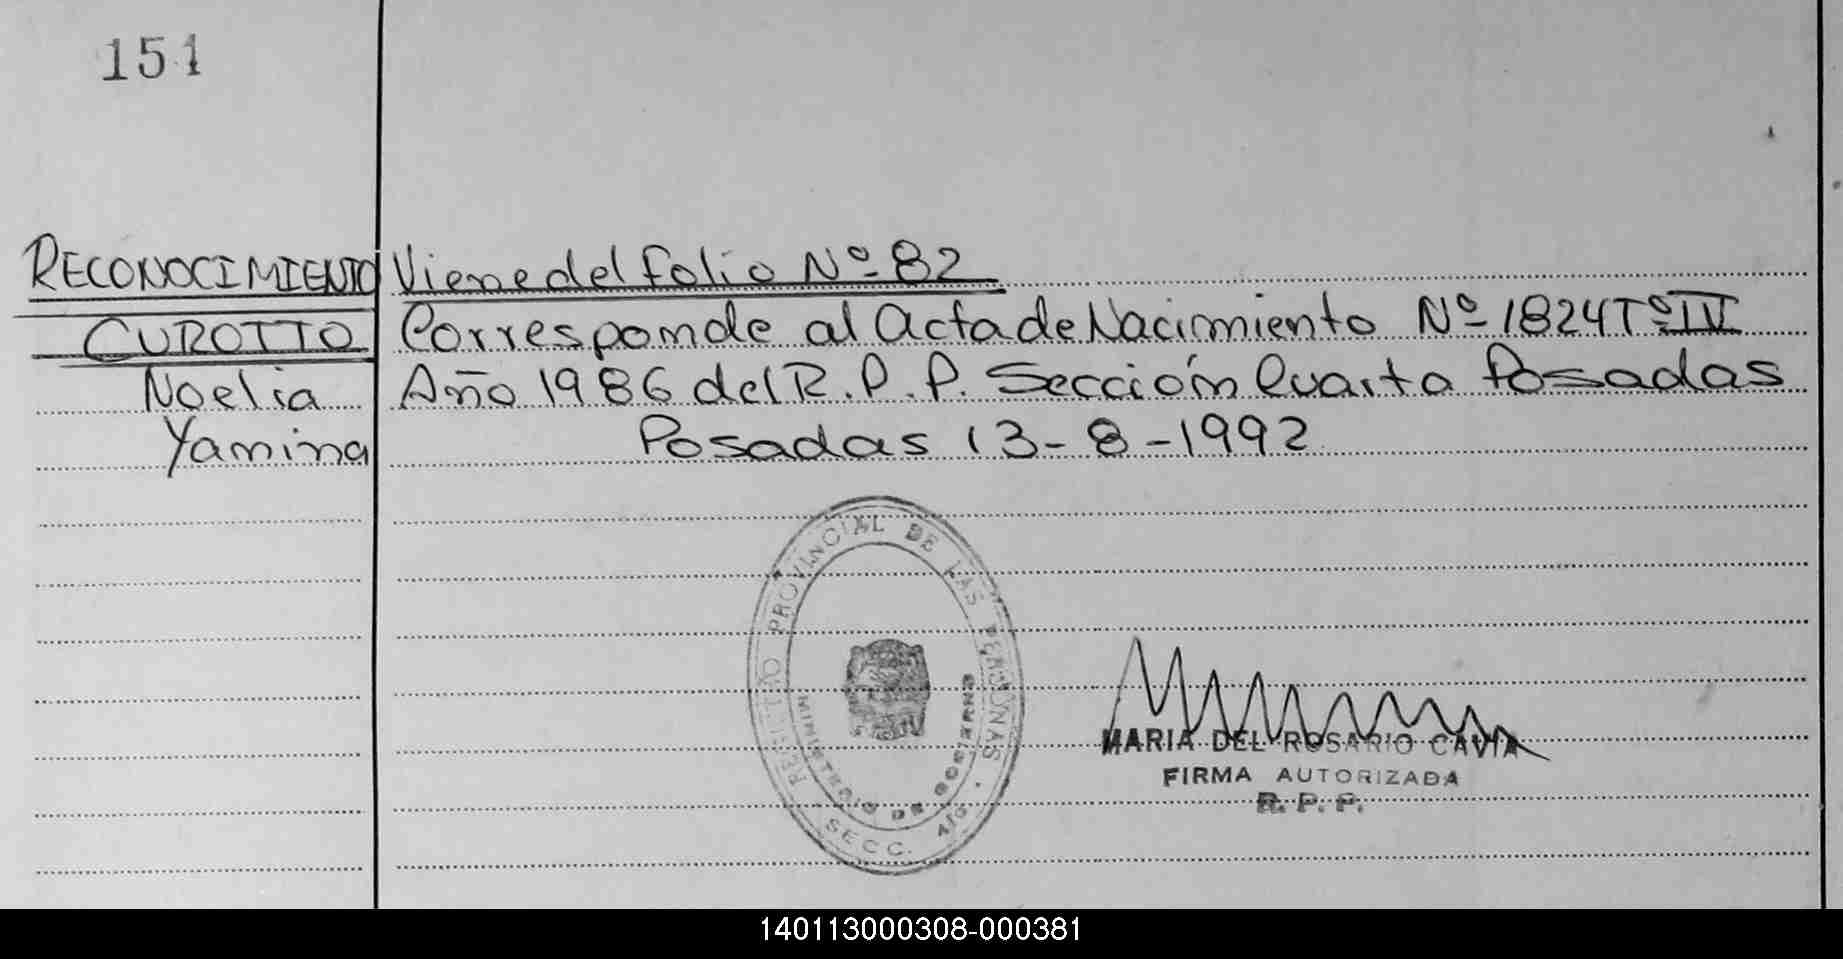 151
RECONOCIMIENTO
CUROTTO
Noelia
Yamina
Viene del folio Nº 82
Corresponde al Acta de Nacimiento Nº 1824 Tº IV
Año 1986 del R.P.P. Sección Cuarta Posadas
Posadas 13-8-1992
REGISTRO PROVINCIAL DE LAS PERSONAS
MINISTERIO DE GOBIERNO
SECC. 4ta.
MARIA DEL ROSARIO CAVIA
FIRMA AUTORIZADA
R. P. P.
140113000308-000381